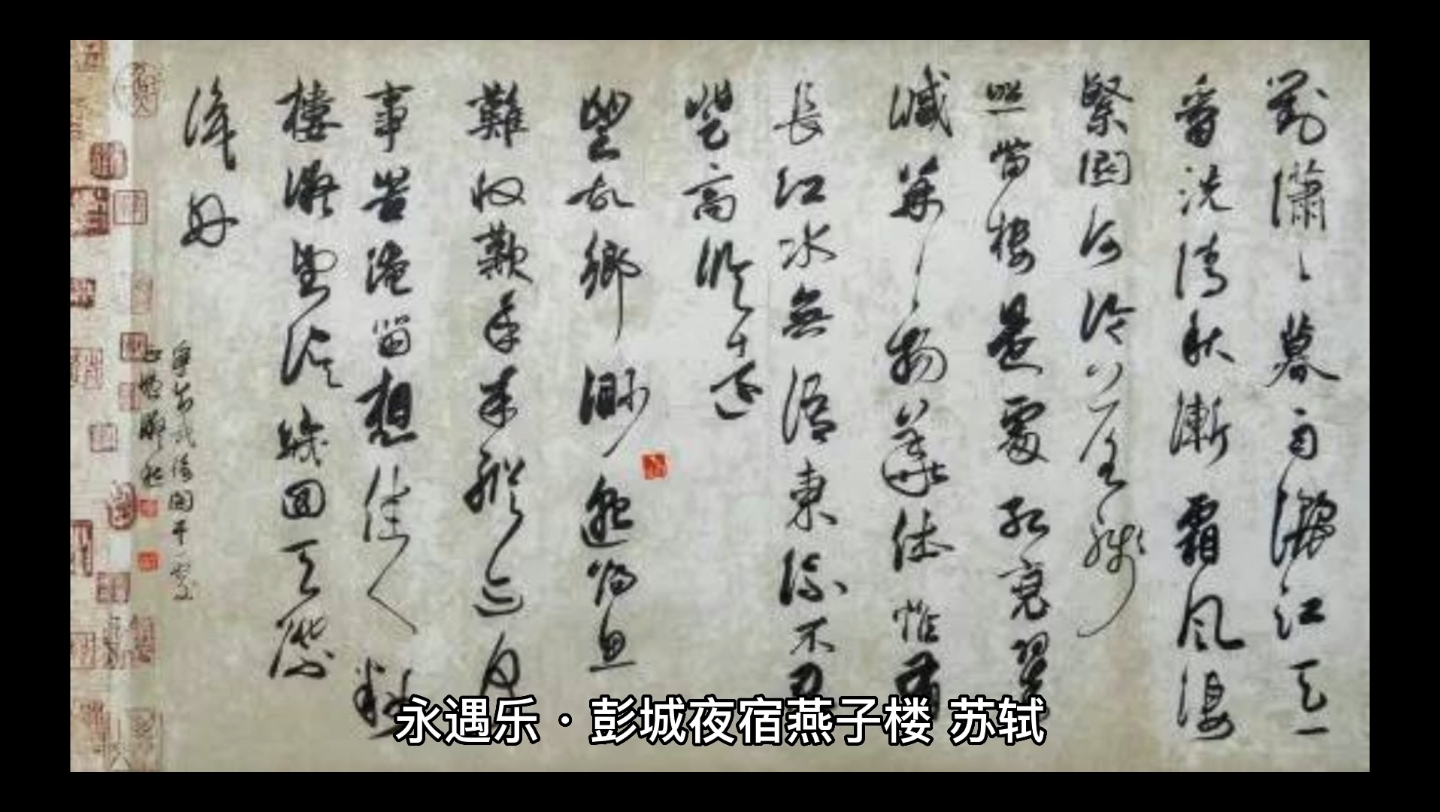 對瀟瀟暮雨灑江天一
番洗清秋漸霜風淒
緊關河冷落殘
照當樓是處紅衰翠
減苒苒物華休惟有
長江水無語東流不忍
登高臨遠
望故鄉渺邈歸思
難收歎年來蹤跡何
事苦淹留想佳人妝
樓凝望誤幾回天際
識舟
永遇乐·彭城夜宿燕子楼 苏轼